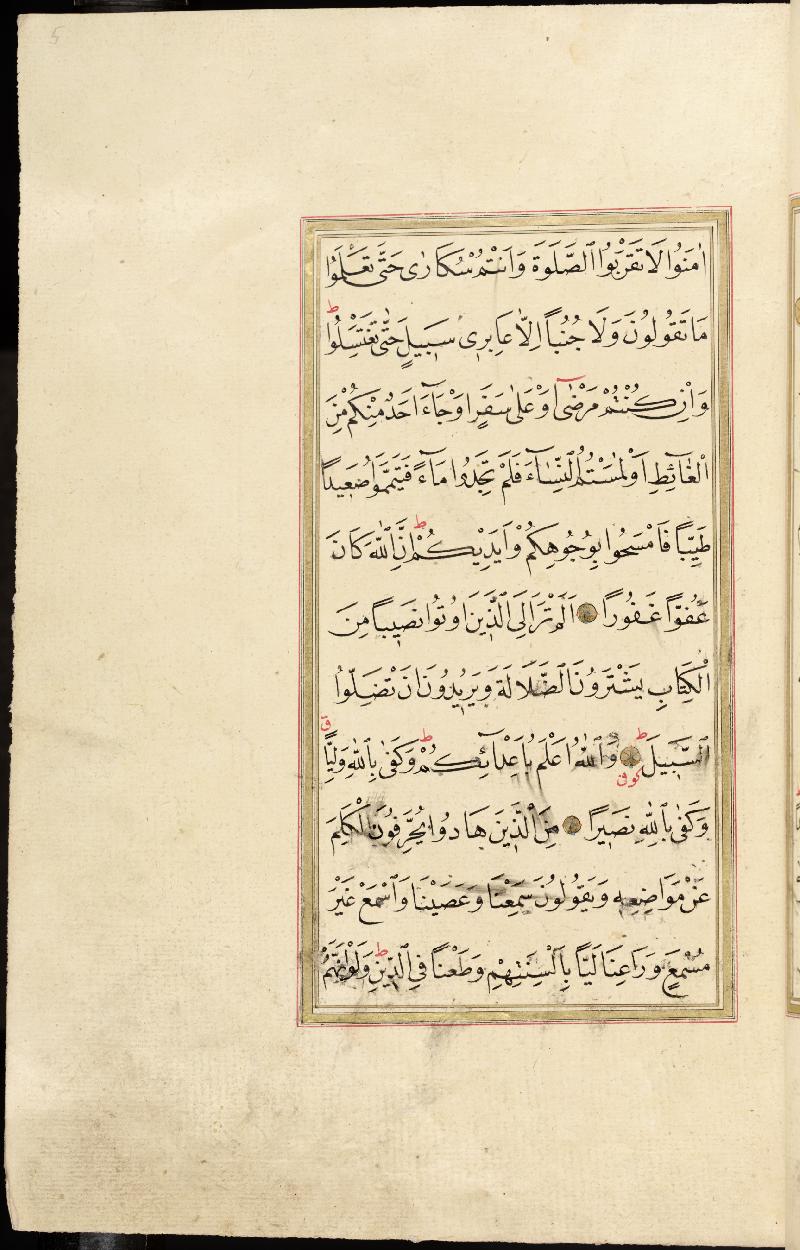 اٰمَنُوا لَا تَقْرَبُوا الصَّلٰوةَ وَاَنْتُمْ سُكَارٰى حَتّٰى تَعْلَمُوا
مَا تَقُولُونَ وَلَا جُنُبًا اِلَّا عَابِرٖى سَبٖيلٍ حَتّٰى تَغْتَسِلُوا ط
وَاِنْ كُنْتُمْ مَرْضٰٓى اَوْ عَلٰى سَفَرٍ اَوْ جَٓاءَ اَحَدٌ مِنْكُمْ مِنَ
الْغَٓائِطِ اَوْ لٰمَسْتُمُ النِّسَٓاءَ فَلَمْ تَجِدُوا مَٓاءً فَتَيَمَّمُوا صَعٖيدًا
طَيِّبًا فَامْسَحُوا بِوُجُوهِكُمْ وَاَيْدٖيكُمْ ط اِنَّ اللّٰهَ كَانَ
عَفُوًّا غَفُورًا اَلَمْ تَرَ اِلَى الَّذٖينَ اُوتُوا نَصٖيبًا مِنَ
الْكِتَابِ يَشْتَرُونَ الضَّلَالَةَ وَيُرٖيدُونَ اَنْ تَضِلُّوا
السَّبٖيلَ ط كوفى وَاللّٰهُ اَعْلَمُ بِاَعْدَٓائِكُمْ ط وَكَفٰى بِاللّٰهِ وَلِيًّا ق
وَكَفٰى بِاللّٰهِ نَصٖيرًا مِنَ الَّذٖينَ هَادُوا يُحَرِّفُونَ الْكَلِمَ
عَنْ مَوَاضِعِهٖ وَيَقُولُونَ سَمِعْنَا وَعَصَيْنَا وَاسْمَعْ غَيْرَ
مُسْمَعٍ وَرَاعِنَا لَيًّا بِاَلْسِنَتِهِمْ وَطَعْنًا فِى الدّٖينِ ط وَلَوْ اَنَّهُمْ
5